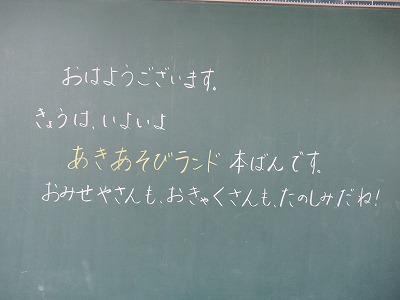 おはようございます。
きょうは、いよいよ
あきあそびランド 本ばんです。
おみせやさんも、おきゃくさんも、たのしみだね！